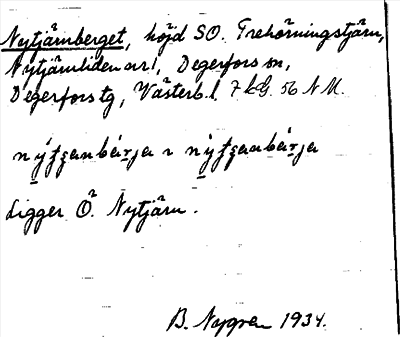 Nytjärnberget, höjd SO. Trehörningstjärn,
Nytjärnliden arl, Degerfors sn,
Degerfors tg, Västerb. l. 7 kG. 56 NM.
Ligger Ö. Nytjärn.
B. Nygren 1934.